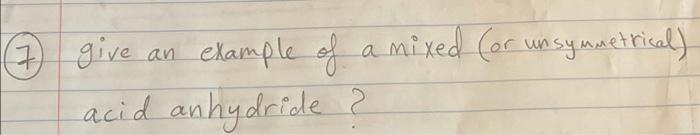 7 give an example of a mixed (or unsymmetrical)
acid anhydride ?